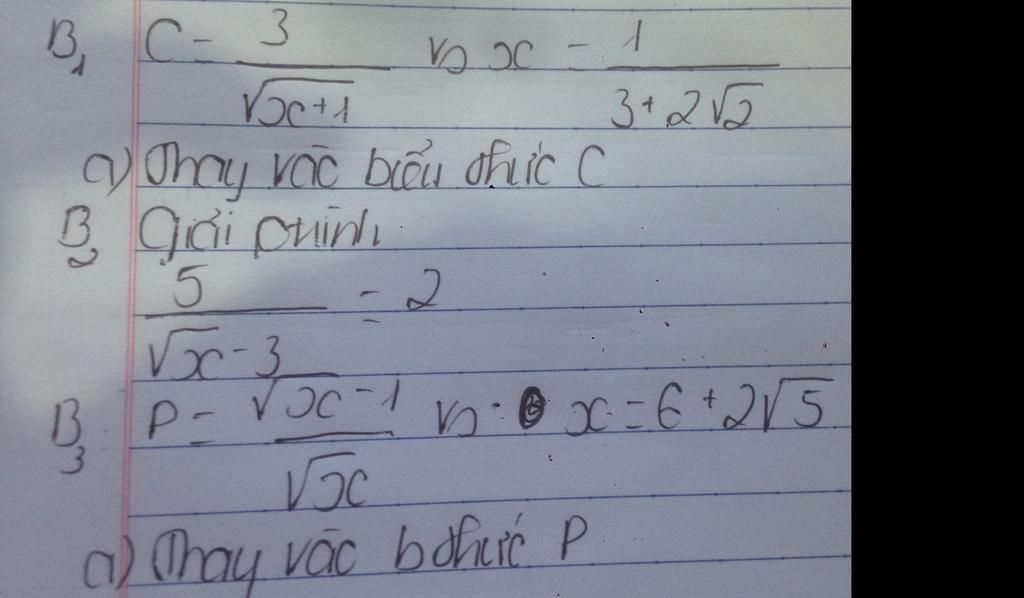 B1 C = 3/√x+1 vs x = 1/3+2√2
a) Thay vào biểu thức C
B2 Giải ptrình
5/√x-3 = 2
B3 P = √x-1/√x vs x = 6+2√5
a) Thay vào b thức P